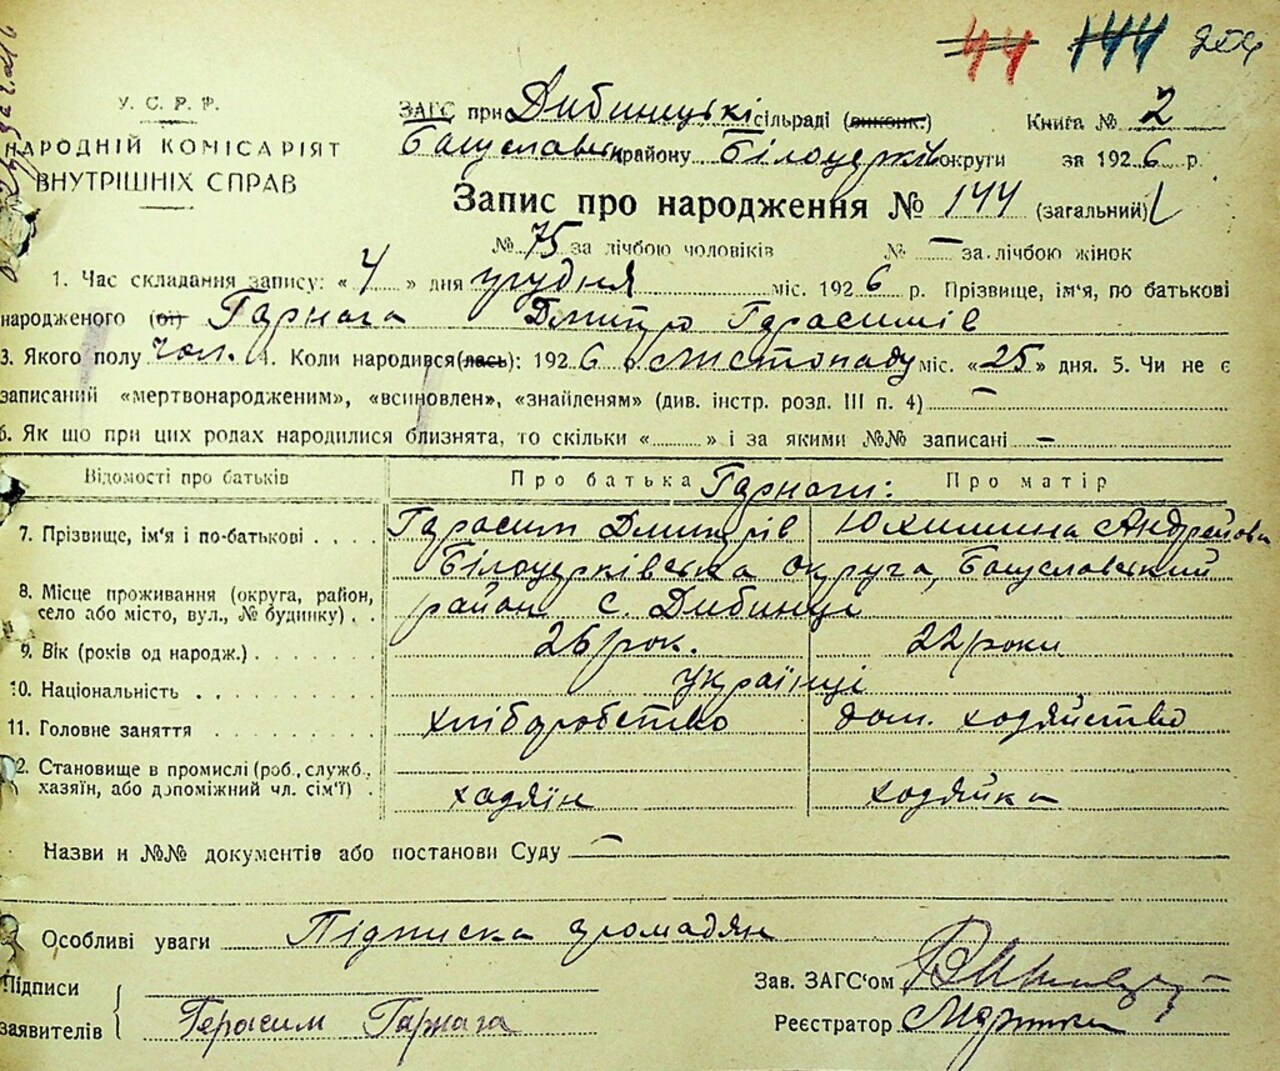 44 144
У. С. Р. Р.
НАРОДНІЙ КОМІСАРІЯТ
ВНУТРІШНІХ СПРАВ
ЗАГС при Дибинецькі сільраді (виконк.) Книга № 2
Богуславськ району Білоцерків округи за 1926 р.
Запис про народження № 144 (загальний)
№ 75 за лічбою чоловіків № — за лічбою жінок
1. Час складання запису: « 4 » дня грудня міс. 1926 р. Прізвище, ім'я, по батькові
народженого (ої) Гарнага Дмитро Гарасимів
3. Якого полу чол. 4. Коли народився (лась): 1926 р. листопаду міс. «25» дня. 5. Чи не є
записаний «мертвонародженим», «всиновлен», «знайденям» (див. інстр. розд. III п. 4) —
6. Як що при цих родах народилися близнята, то скільки « » і за якими №№ записані —
Відомості про батьків Про батька Гарнаги: Про матір
7. Прізвище, ім'я і по-батькові Гарасим Дмитрів Юхимина Андрейова
Білоцерківська округа, Богуславський
8. Місце проживання (округа, район, район с. Дибинці
село або місто, вул., № будинку)
9. Вік (років од народж.) 26 рок. 22 роки
10. Національність українці
11. Головне заняття хліборобство дом. хозяйство
12. Становище в промислі (роб., служб.,
хазяїн, або допоміжний чл. сім'ї) хазяїн хозяйка
Назви и №№ документів або постанови Суду —
Особливі уваги Підписка громадян
Підписи Зав. ЗАГС'ом
заявителів Герасим Гарнага Реєстратор